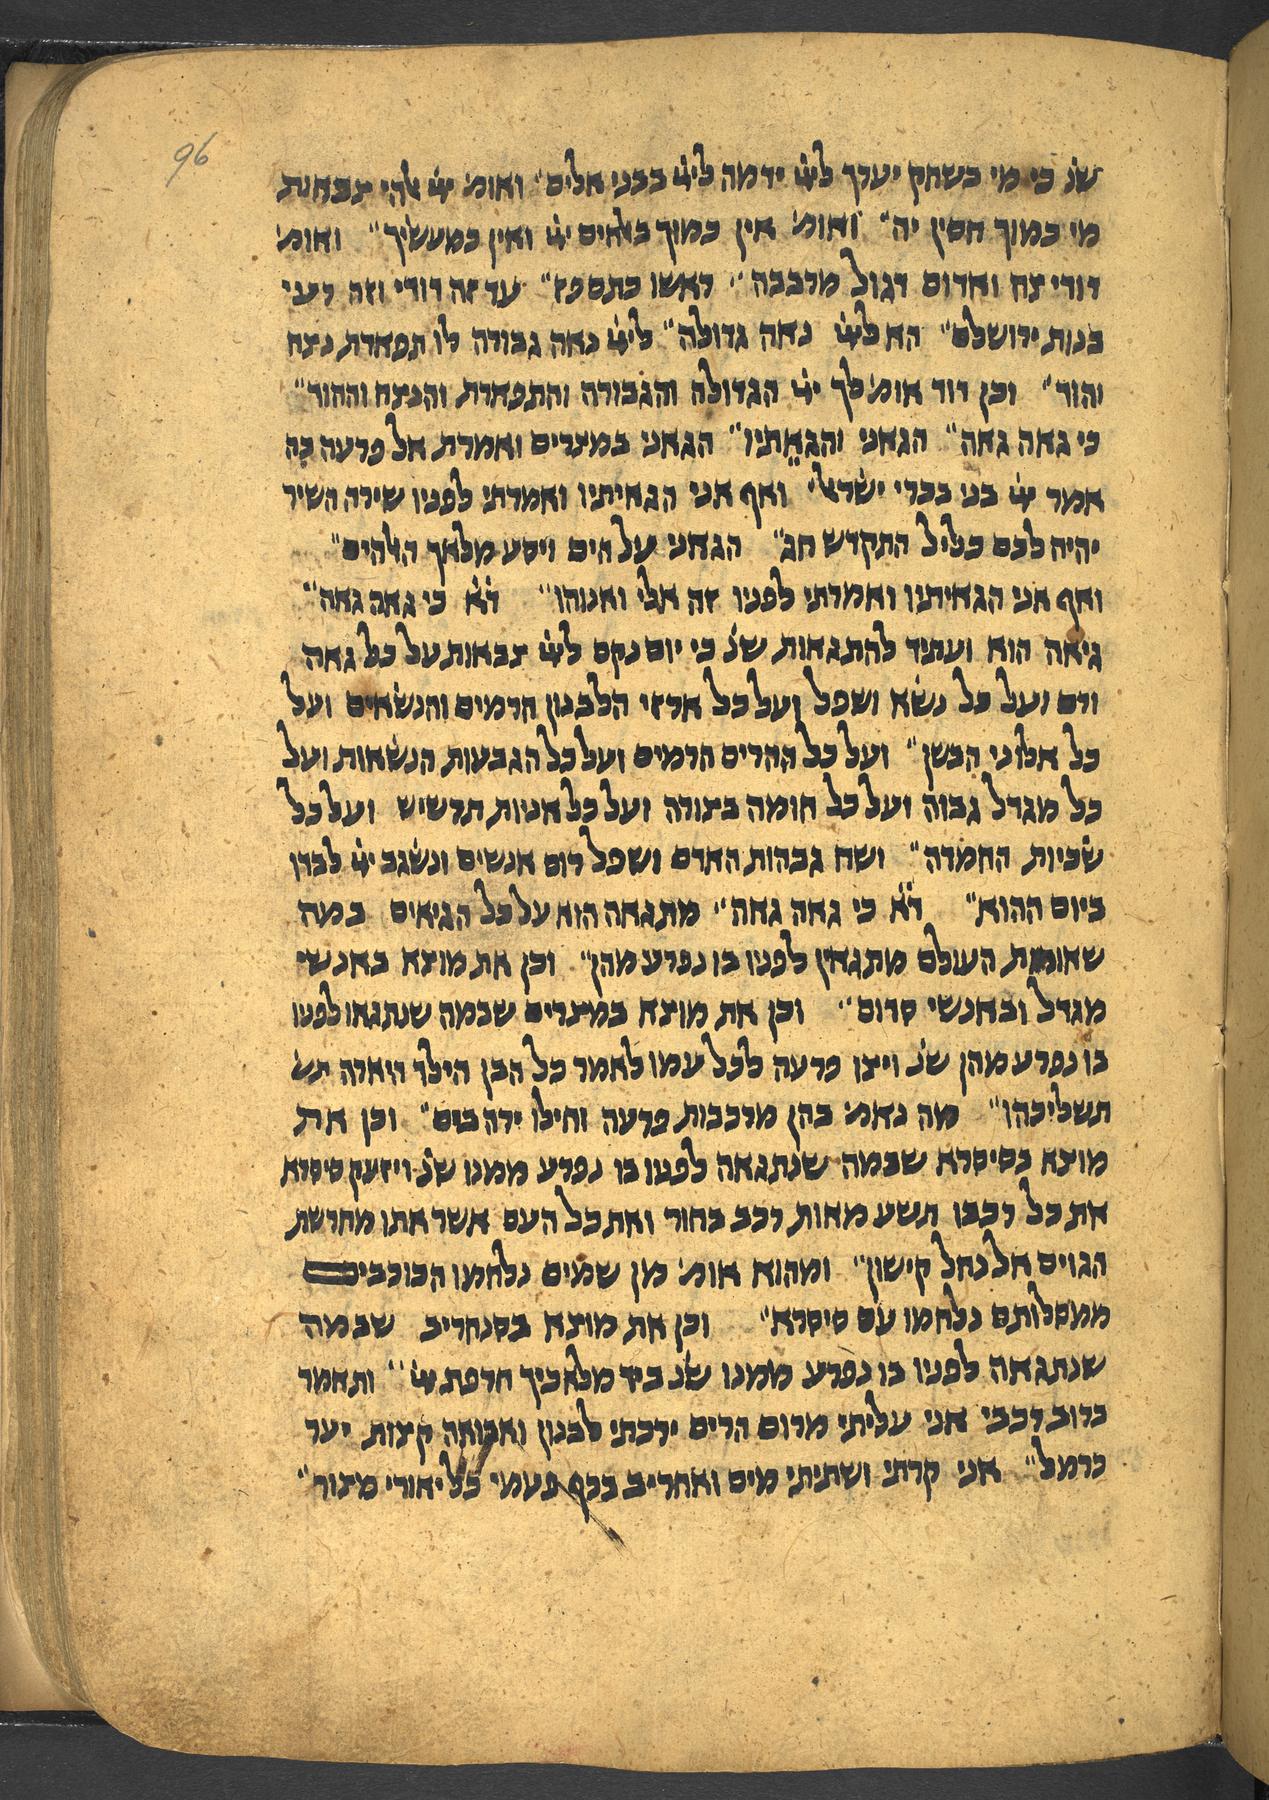 96
שנ כי מי בשחק יערך ליי ידמה ליי בבני אלים״ ואומ׳ יי אלהי צבאות
מי כמוך חסין יה״ ואומ׳ אין כמוך באלהים יי ואין כמעשיך״ ואומ׳
דודי צח ואדום דגול מרבבה״ ראשו כתם פז״ עד זה דודי וזה רעי
בנות ירושלם״ הא ליי נאה גדולה״ ליי נאה גבורה לו תפארת נצח
והוד״ וכן דוד אומ׳ לך יי הגדולה והגבורה והתפארת והנצח וההוד״
כי גאה גאה״ הגאני והגאתיו״ הגאני במצרים ואמרת אל פרעה כה
אמר יי בני בכרי ישראל״ ואף אני הגאיתיו ואמרתי לפניו שירה השיר
יהיה לכם כליל התקדש חג״ הגאני על הים ויסע מלאך האלהים״
ואף אני הגאיתיו ואמרתי לפניו זה אלי ואנוהו״ ד̇א̇ כי גאה גאה״
גיאה הוא ועתיד להתגאות שנ כי יום נקם ליי צבאות על כל גאה
ורם ועל כל נשא ושפל ועל כל ארזי הלבנון הרמים והנשאים ועל
כל אלוני הבשן״ ועל כל ההרים הרמים ועל כל הגבעות הנשאות ועל
כל מגדל גבוה ועל כל חומה בצורה ועל כל אניות תרשיש ועל כל
שכיות החמדה״ ושח גבהות האדם ושפל רום אנשים ונשגב יי לבדו
ביום ההוא״ ד̇א̇ כי גאה גאה״ מתגאה הוא על כל הגיאים במה
שאומות העולם מתגאין לפניו בו נפרע מהן״ וכן את מוצא באנשי
מגדל ובאנשי סדום״ וכן את מוצא במצרים שבמה שנתגאו לפניו
בו נפרע מהן שנ ויצו פרעה לכל עמו לאמר כל הבן הילד היארה תש׳
תשליכהו״ מה נאמ׳ בהן מרכבות פרעה וחילו ירה בים״ וכן את
מוצא בסיסרא שבמה שנתגאה לפניו בו נפרע ממנו שנ ויזעק סיסרא
את כל רכבו תשע מאות רכב בחור ואת כל העם אשר אתו מחרשת
הגוים אל נחל קישון״ ומהוא אומ׳ מן שמים נלחמו הכוכבים
ממסלותם נלחמו עם סיסרא״ וכן את מוצא בסנחריב שבמה
שנתגאה לפניו בו נפרע ממנו שנ ביד מלאכיך חרפת יי״ ותאמר
ברוב רכבי אני עליתי מרום הרים ירכתי לבנון ואבואה קצות יער
כרמל״ אני קרתי ושתיתי מים ואחריב בכף פעמי כל יאורי מצור״